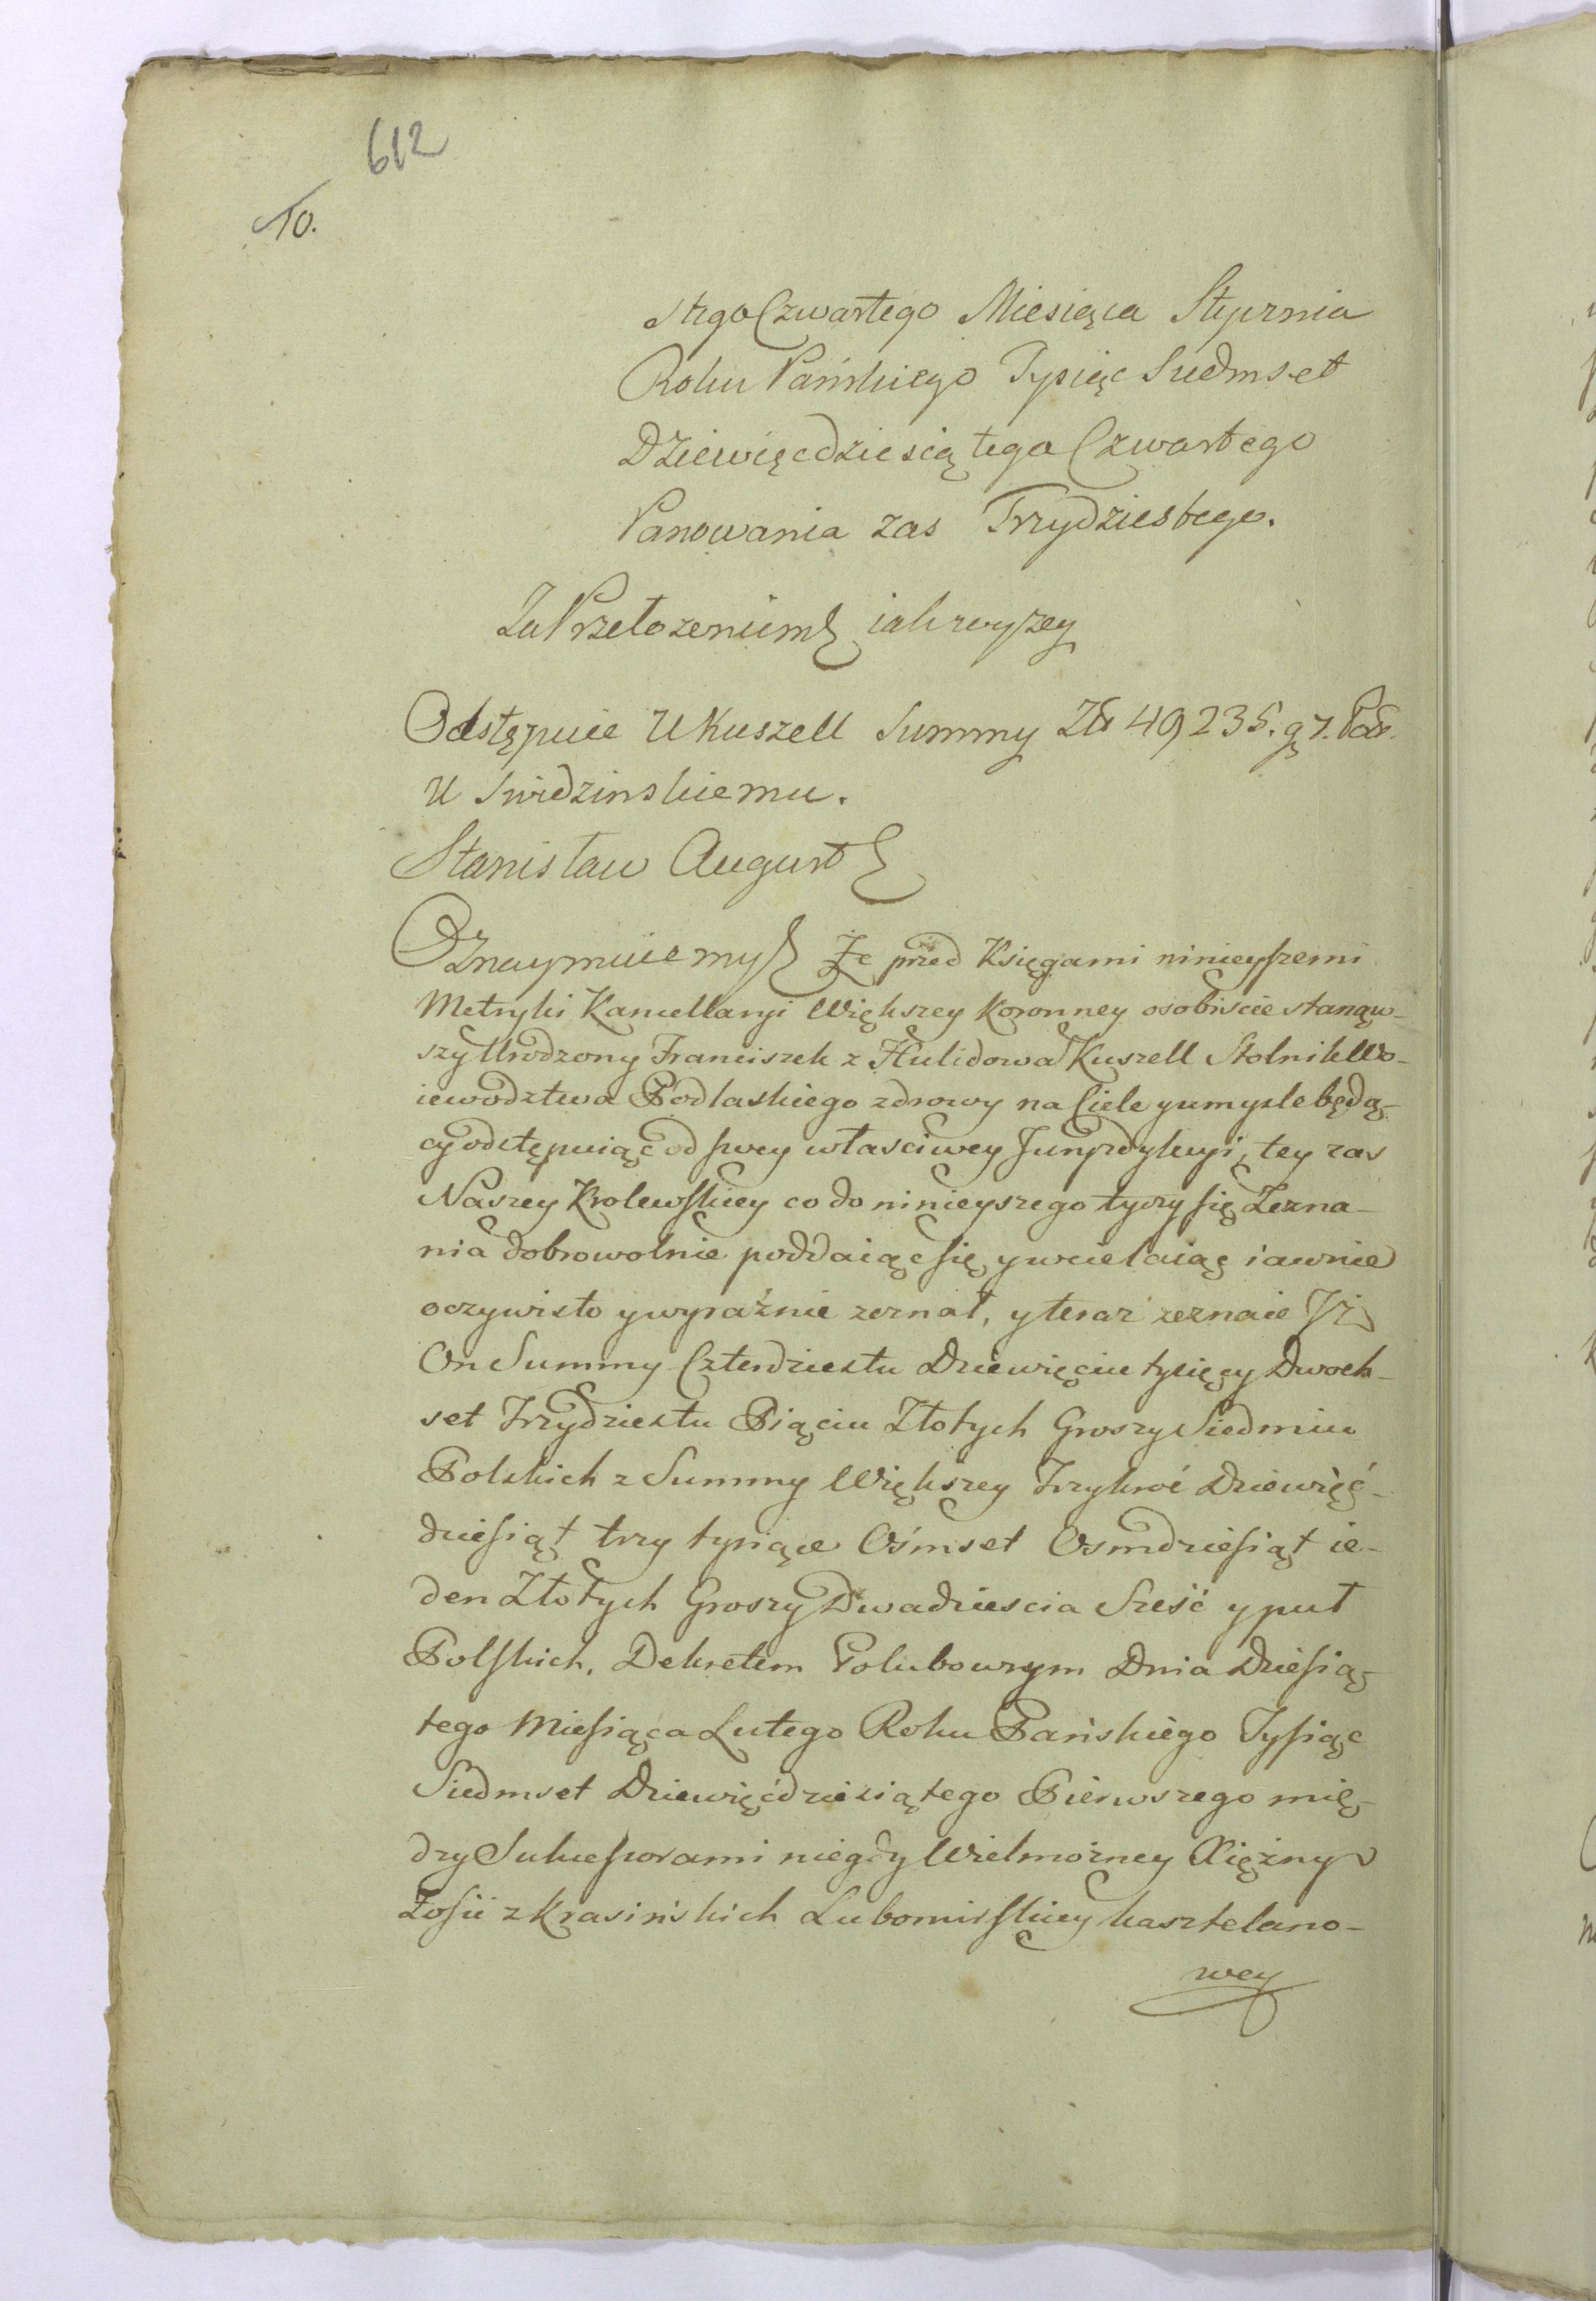 612
10.
stego Czwartego Miesiąca Stycznia
Roku Pańskiego Tysiąc Siedmset
Dziewięcdziesiątego Czwartego
Panowania zas Trzydziestego.
Za Przełozeniem iak wyzey
Odstępuie U Kuszell Summy Zł 49235. g 7. Pol.
U Swidzinskiemu.
Stanisław August
Oznaymuiemy Że przed Księgami ninieyszemi
Metryki Kancellaryi Większey Koronney osobiscie stanąw-
szy Urodzony Franciszek z Hulidowa Kuszell Stolnik Wo-
iewodztwa Podlaskiego zdrowy na Ciele y umysle będą-
cy odstępuiąc od swey własciwey Juryzdykcyi, tey zas
Naszey Krolewskiey co do ninieyszego tyczy się Zezna-
nia dobrowolnie poddaiąc się y wcielaiąc iawnie
oczywisto y wyraźnie zeznał, y teraz zeznaie Iż
On Summy Czterdziestu Dziewięciu tysięcy Dwoch-
set Trzydziestu Piąciu Złotych Groszy Siedmiu
Polskich z Summy Większey Trzykroć Dziewięć-
dziesiąt trzy tysiące Ośmset Osmdziesiąt ie-
den Złotych Groszy Dwadziescia Sześć y puł
Polskich, Dekretem Polubownym Dnia Dziesią-
tego Miesiąca Lutego Roku Pańskiego Tysiąc
Siedmset Dziewięćdziesiątego Pierwszego mię-
dzy Sukcessorami niegdy Wielmożney Xiężny
Zofii z Krasińskich Lubomirskiey kasztelano-
wey